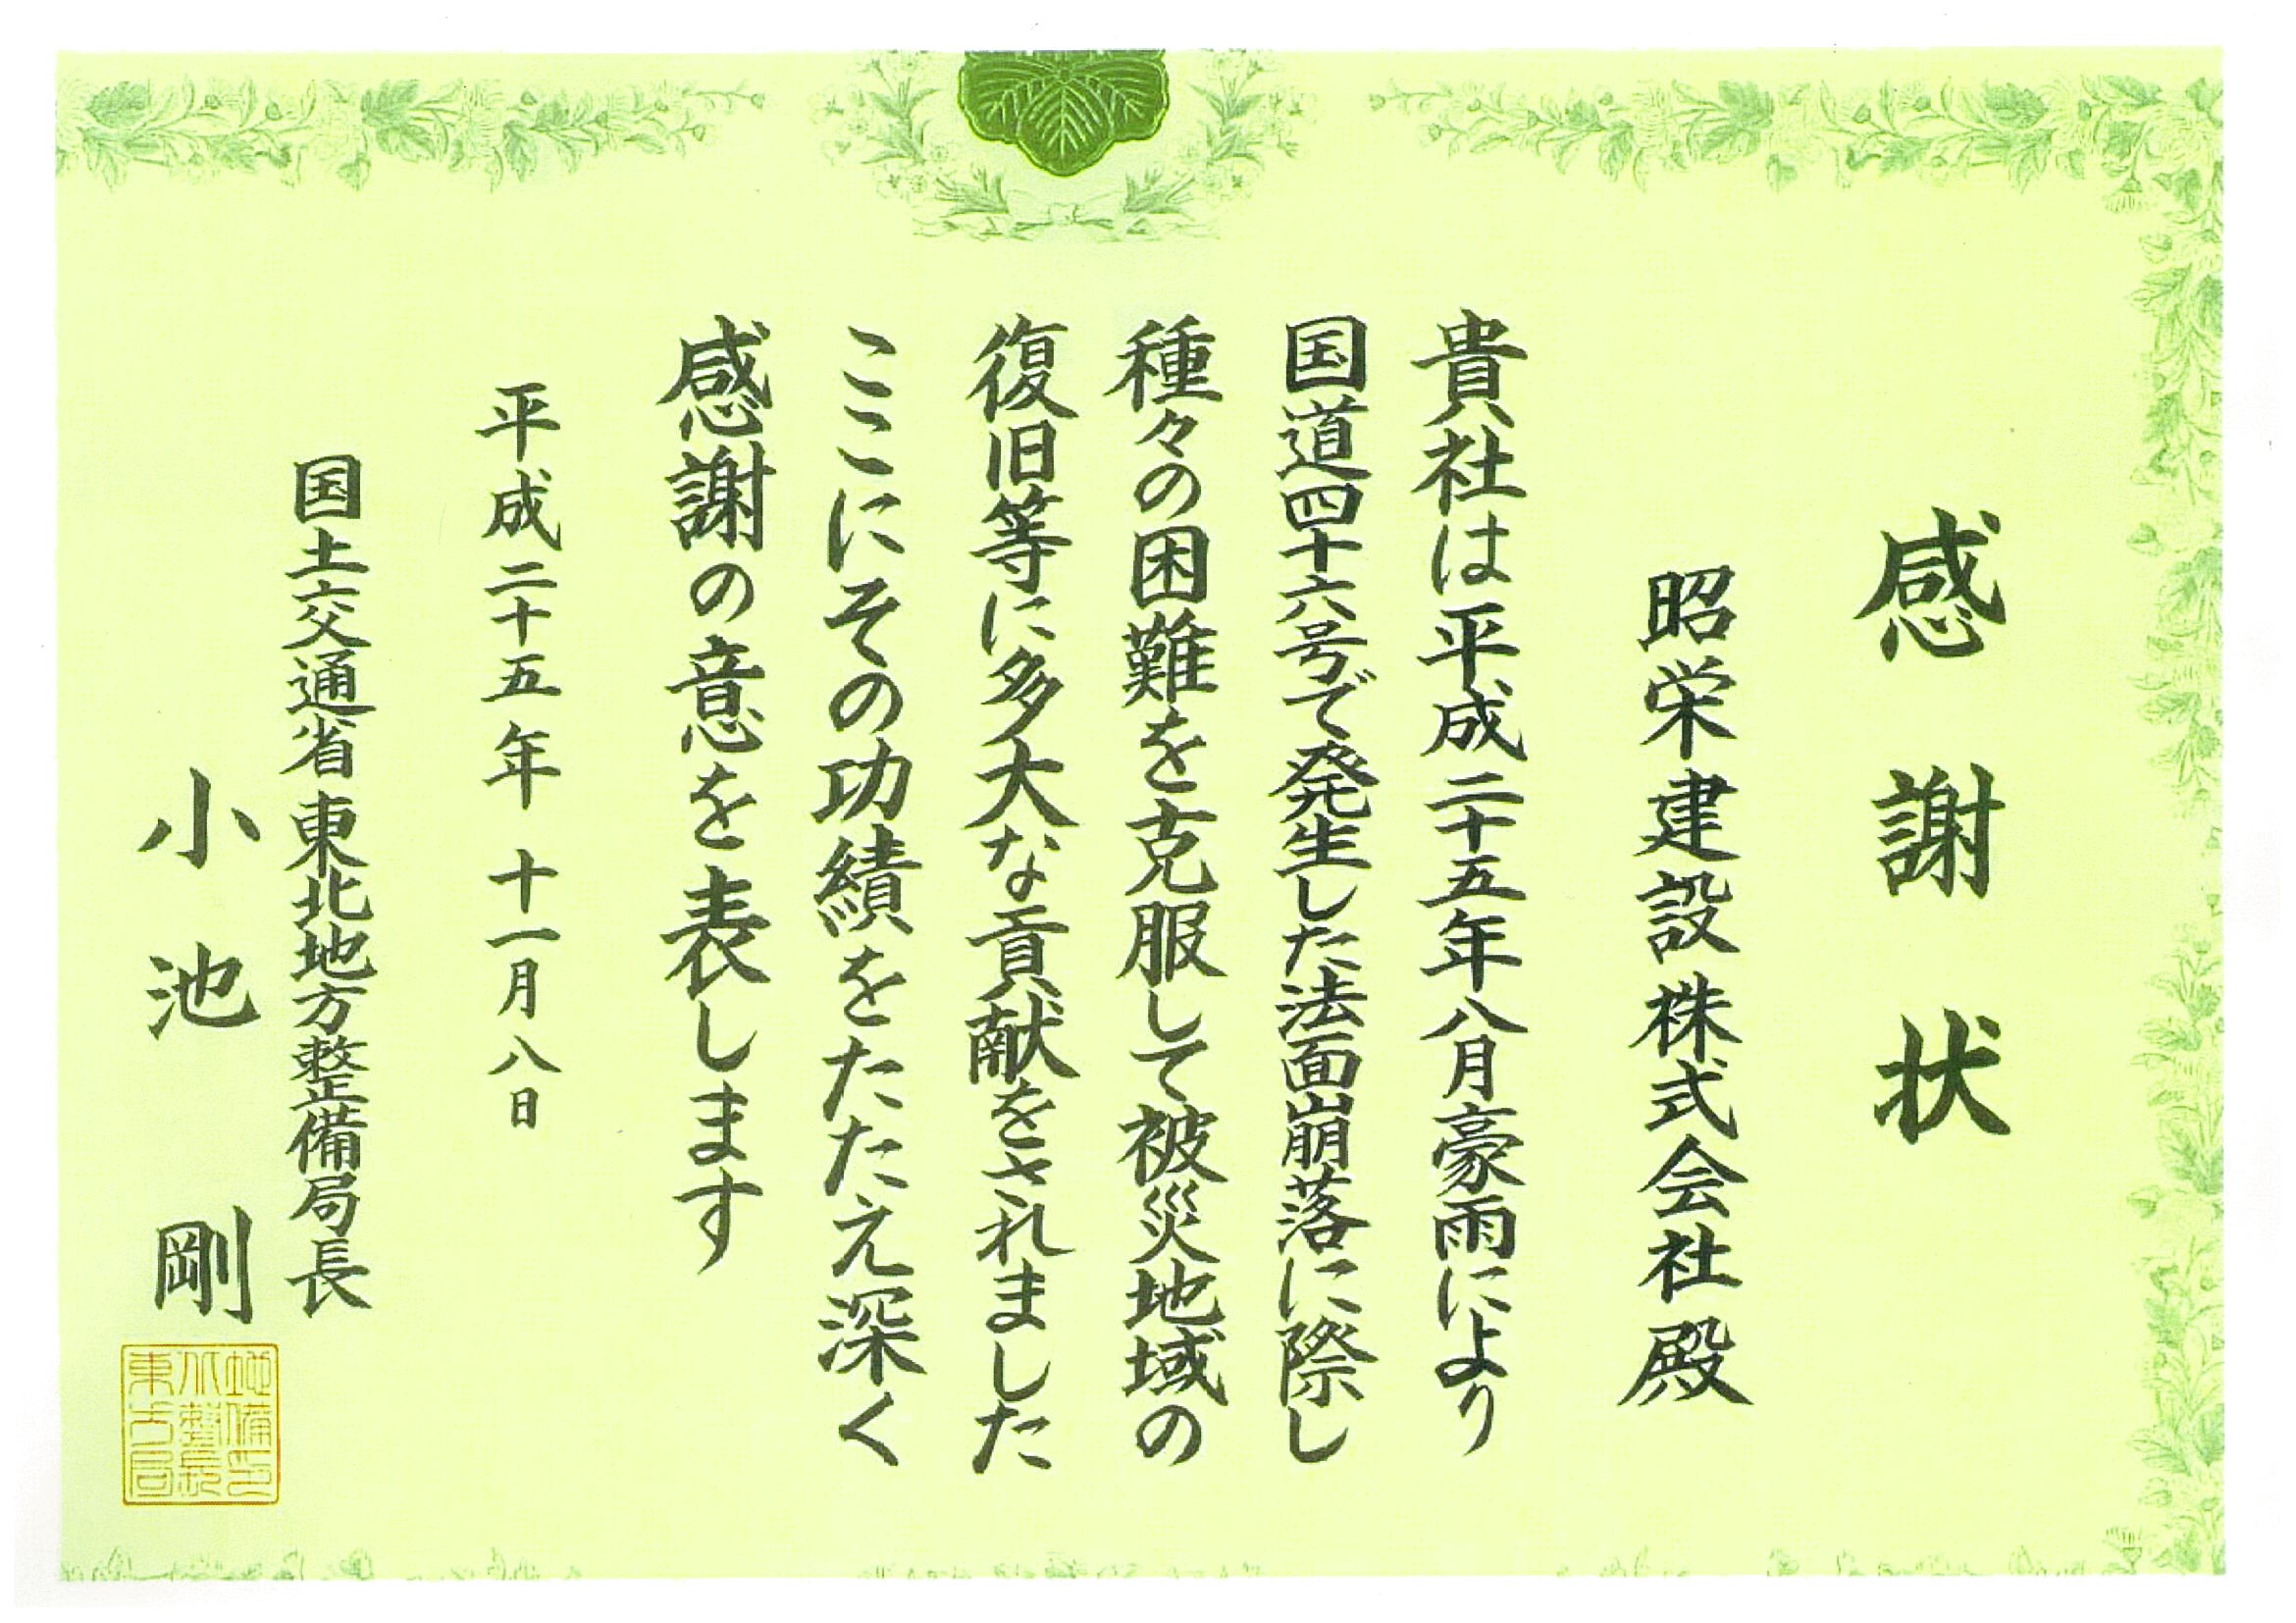 感謝状
昭栄建設株式会社殿
貴社は平成二十五年八月豪雨により
国道四十六号で発生した法面崩落に際し
種々の困難を克服して被災地域の
復旧等に多大な貢献をされました
ここにその功績をたたえ深く
感謝の意を表します
平成二十五年十一月八日
国土交通省東北地方整備局長
小池剛